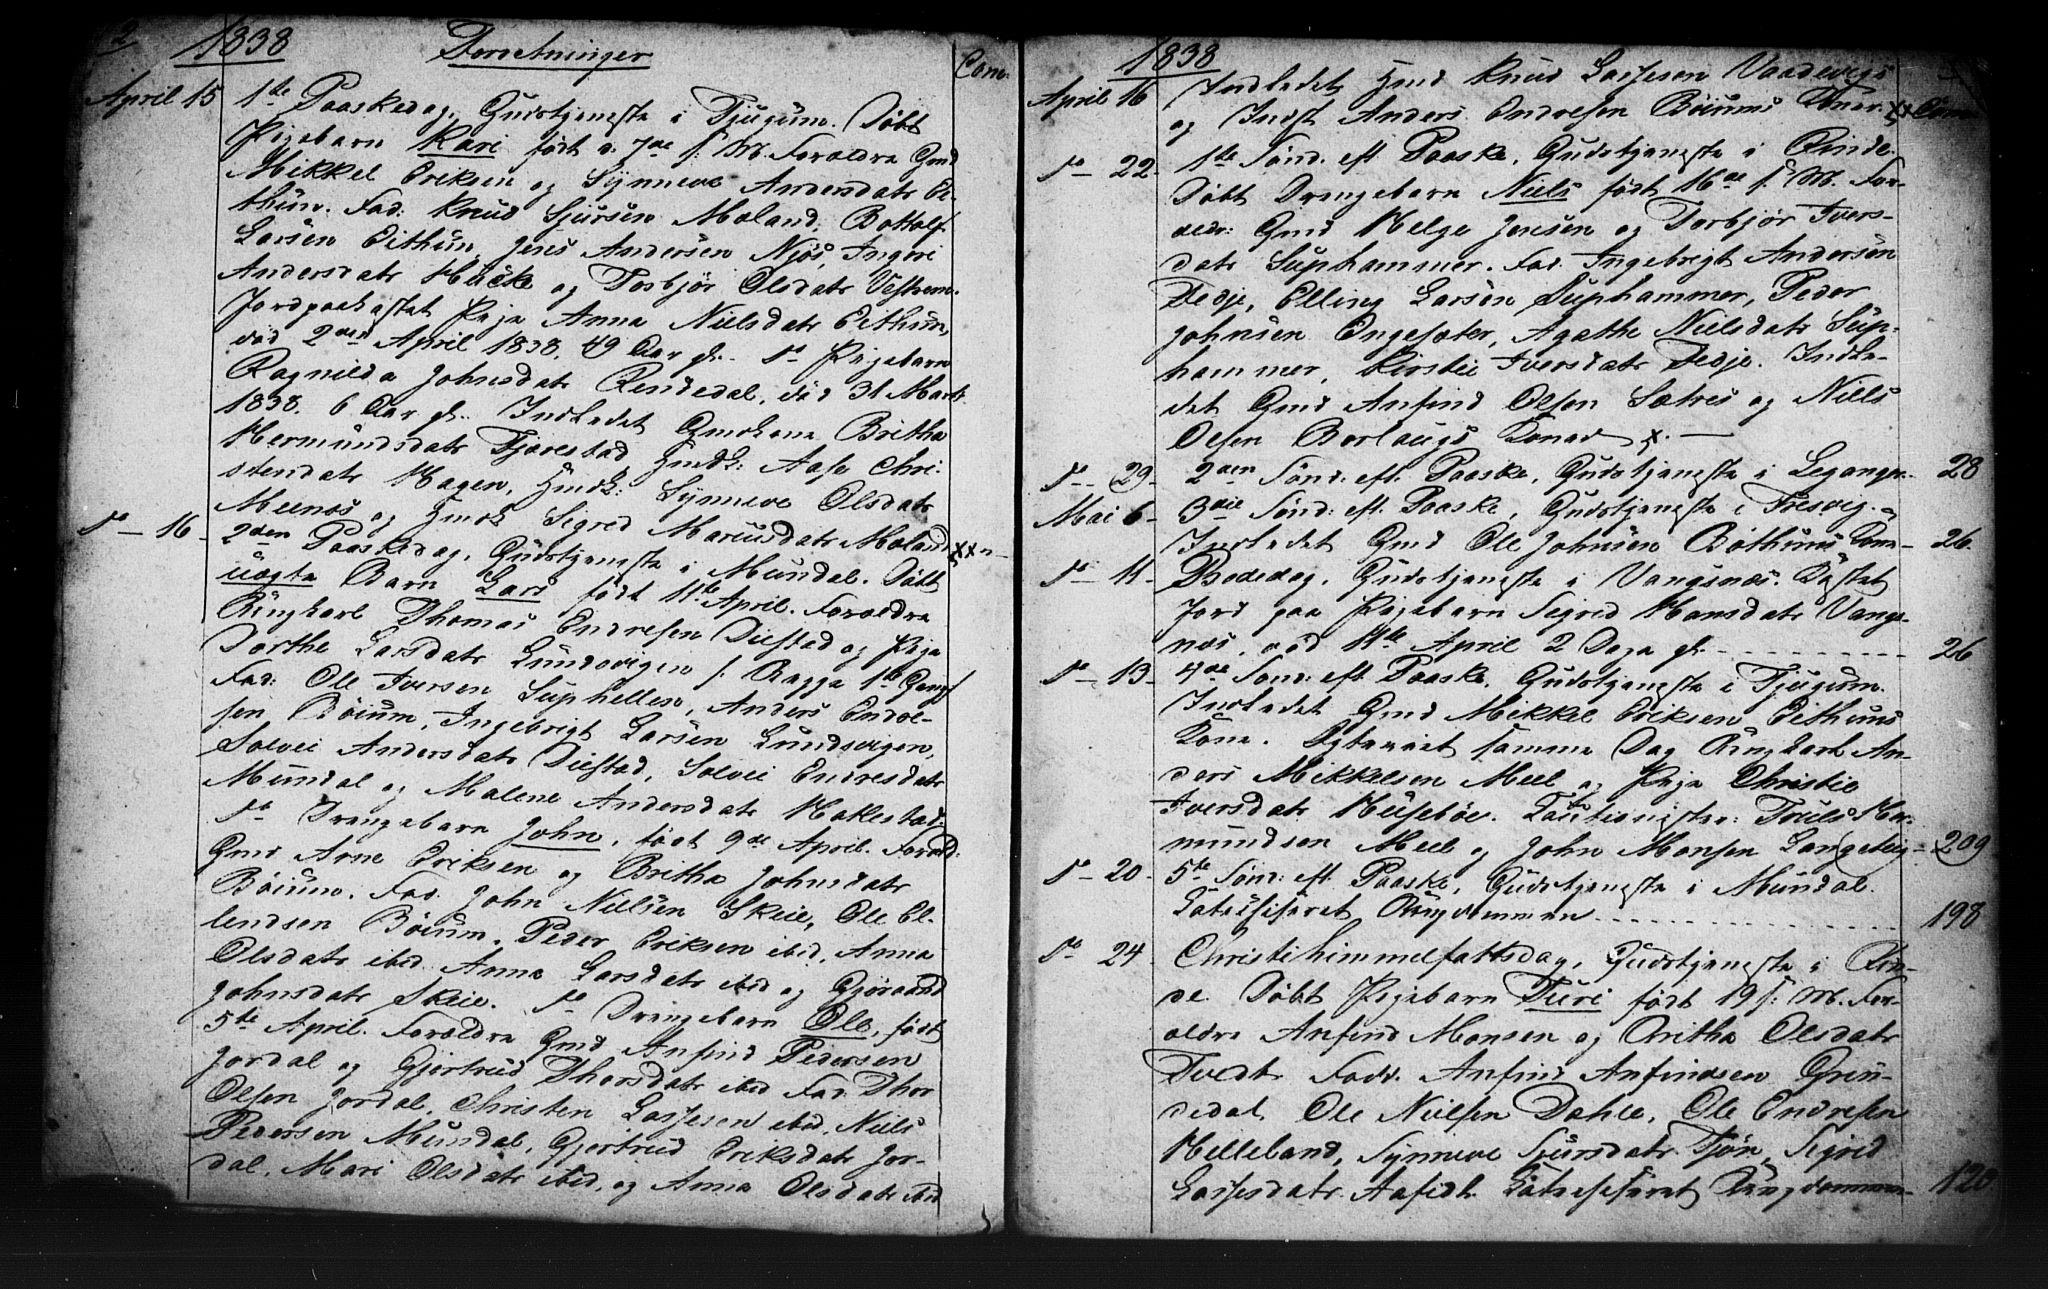 2 1838 Forretninger Com.
April 15 1te Paaskedag, Gudstjeneste i Tjugum. Døbt
Pigebarn Kari født d. 7de f: M. Foreldre Gmd
Mikkel Eriksen og Synneve Andersdatr Ei-
thun. Fad: Knud Sjursen Moland, Bottolf
Larsen Eithun, Jens Andersen Njøs, Ingeri
Andersdatr Hücke og Torbjør Olsdatr Vestrem.
Jordpaakastet Pige Anna Nielsdatr Eithun,
død 2den April 1838. 49 Aar gl. do Pigebarn
Ragnilda Johnsdatr Rendedal, død 31 Marts
1838. 6 Aar gl. Indledet Gmdkone Britha
Hermundsdatr Tjørestad Hmdk: Aase Chri-
stendatr Hagen, Hmdk: Synneve Olsdatr
Meenæs og Hmdk Sigrid Marcusdatr Moland
do — 16 - 2den Paaskedag, Gudstjeneste i Mundal. Døbt
uægte Barn Lars født 11te April. Foreldre
Ungkarl Thomas Endresen Distad og Pige
Dorthe Larsdatr Lundsvigen f. Begge 1te Gang
Fad: Ole Iversen Suphellen, Anders Endre-
sen Bøium, Ingebrigt Larsen Lundsvigen,
Solvei Andersdatr Distad, Solvei Endresdatr
Mundal og Malene Andersdatr Hatlestad.
do Drengebarn John, født 9de April. Foreld:
Gmd Arne Eriksen og Britha Johnsdatr
Bøium. Fad. John Nielsen Skeie, Ole El-
lendsen Bøium, Peder Eriksen ibid, Anna
Olsdatr ibid Anna Larsdatr ibid og Gjøraand
Johnsdatr Skeie. do Drengebarn Ole, født
5te April. Foreldre Gmd Anfind Pedersen
Jordal og Gjertrud Thorsdatr ibid Fad. Thor
Olsen Jordal, Christen Lassesen ibid, Niels
Pedersen Mundal, Gjertrud Eriksdatr Jor-
dal, Mari Olsdatr ibid, og Anna Olsdatr ibid
1838
April 16 Indledet Hmd Knud Lassesen Vaadevigs
og Indst Anders Endresen Bøiums Koner.
do — 22. 1te Sønd. eft. Paaske, Gudstjeneste i Rinde.
Døbt Drengebarn Niels født 16de f. M. For-
eldr: Gmd Helge Jensen og Torbjør Ivers-
datr Suphammer. Fad. Ingebrigt Andersen
Fedje, Elling Larsen Suphammer, Peder
Johnsen Engesæter, Agathe Nielsdatr Sup-
hammer, Kirstie Iversdatr Fedje. Indle-
det Gmd Anfind Olsen Sætres og Niels
Olsen Borlaugs Koner x.
do — 29 - 2den Sønd: eft. Paaske, Gudstjeneste i Leganger. 28
Mai 6 - 3die Sønd: eft. Paaske, Gudstjeneste i Fresvig.
Indledet Gmd Ole Johnsen Bøthuns Kone - 26.
do — 11 - Bededag, Gudstjeneste i Vangsnæs. Kastet
Jord paa Pigebarn Sigrid Hansdatr Vangs-
næs, død 11te April 2 Dage gl. 26
do — 13 - 4de Sønd: eft. Paaske, Gudstjeneste i Tjugum.
Indledet Gmd Mikkel Eriksen Eithuns
Kone. Egteviet samme Dag Ungkarl An-
ders Mikkelsen Meel og Pige Christie
Iversdatr Husebøe. Cautionister: Truls Her-
mundsen Meel og John Monsen 209
do — 20. 5te Sønd: eft. Paaske, Gudstjeneste i Mundal.
Catechiseret Ungdommen 198
do — 24. Christihimmelfartsdag, Gudstjeneste i Rin-
de. Døbt Pigebarn Turi født 19 f: M. For-
eldre Anfind Monsen og Britha Olsdatr
Tvedt Fadr. Anfind Anfindsen Grin-
dedal Ole Nielsen Dahle, Ole Endresen
Helleland, Synneve Sjursdatr Tjøn, Sigrid
Lassesdatr Aafedt. Catechiseret Ungdommen - 120